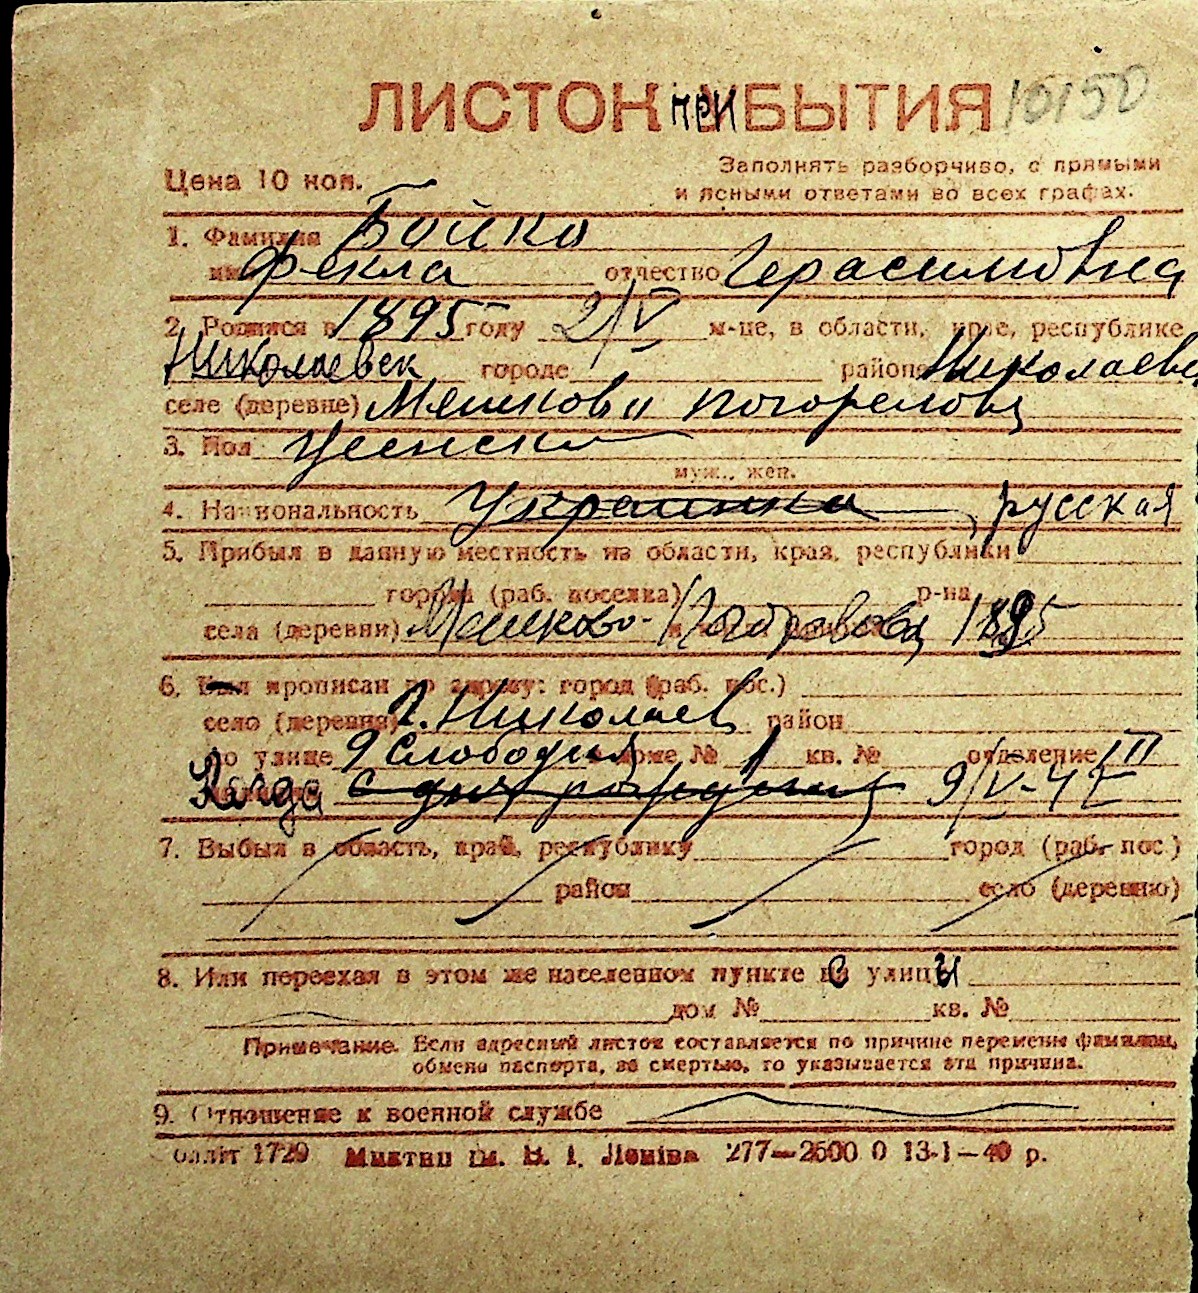 ЛИСТОК ПРИБЫТИЯ 10150
Цена 10 коп.
Заполнять разборчиво, с прямыми
и ясными ответами во всех графах.
1. Фамилия Бойко
имя Фекла отчество Герасимовна
2. Родился в 1895 году 2/V м-це, в области, крае, республике
Николаевск городе районе Николаевск
селе (деревне) Мешково Погорелово
3. Пол женский
муж., жен.
4. Национальность Украинка русская
5. Прибыл в данную местность из области, края, республики
города (раб. поселка) р-на
села (деревни) Мешково- 1895
6. Был прописан по адресу: город (раб. пос.)
село (деревня) г. Николаев район
по улице 9 Слободская доме № 1 кв. № отделение III
Когда с дня рождения 9/V-47
7. Выбыл в область, край, республику город (раб. пос.)
район село (деревню)
8. Или переехал в этом же населенном пункте с улицы
дом № кв. №
Примечание. Если адресный листок составляется по причине перемены фамилии,
обмена паспорта, за смертью, то указывается эта причина.
9. Отношение к военной службе
1729 ім. В. І. Леніна 277—2500 0 13-1—40 р.